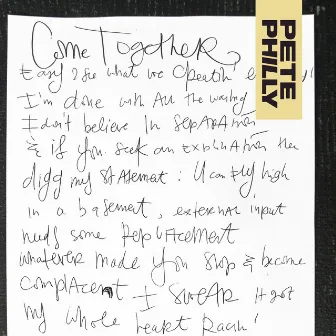 PETE
PHILLY
Come Together
Easy 2 see what we
I'm done with All the wasting
I don't believe In SEPARATION
& if you seek an EXPLANATION then
digg my STATEMENT: U can fly high
In a basement, external input
needs some REPLACEMENT
whatever made you stop & become
COMPLACENT I SWEAR It got
my whole heart Racin'